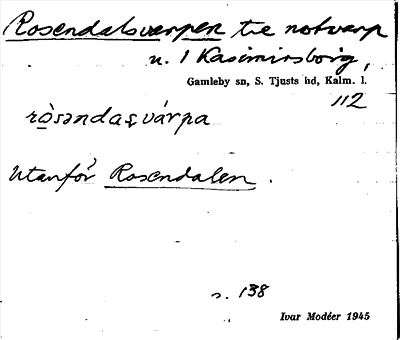 Rosendalsvarpen tre notvarp
u. 1 Kasimirsborg,
Gamleby sn, S. Tjusts hd, Kalm. l.
112
ròsəndaʂvárpa
Utanför Rosendalen.
s. 138
Ivar Modéer 1945